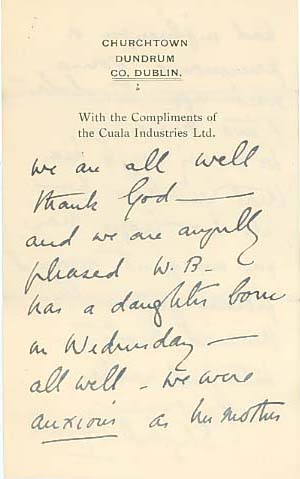 CHURCHTOWN
DUNDRUM
CO, DUBLIN.
With the Compliments of
the Cuala Industries Ltd.
we are all well
thank God —
and we are awfully
pleased W. B —
has a daughter born
on Wednesday —
all well - we were
anxious as her mother